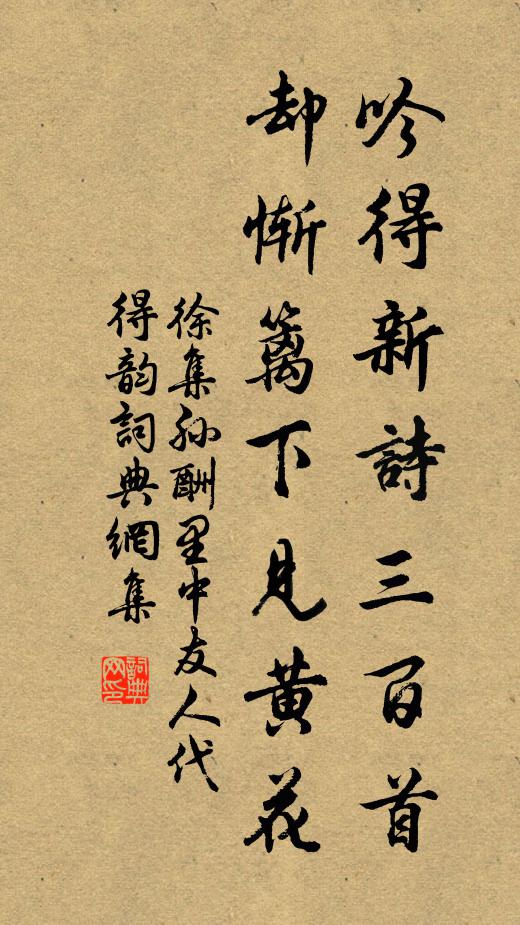 吟得新詩三百首
却慚篱下見黄花
徐集孙酬里中友人代
得韵詞典網集
詞典
网印